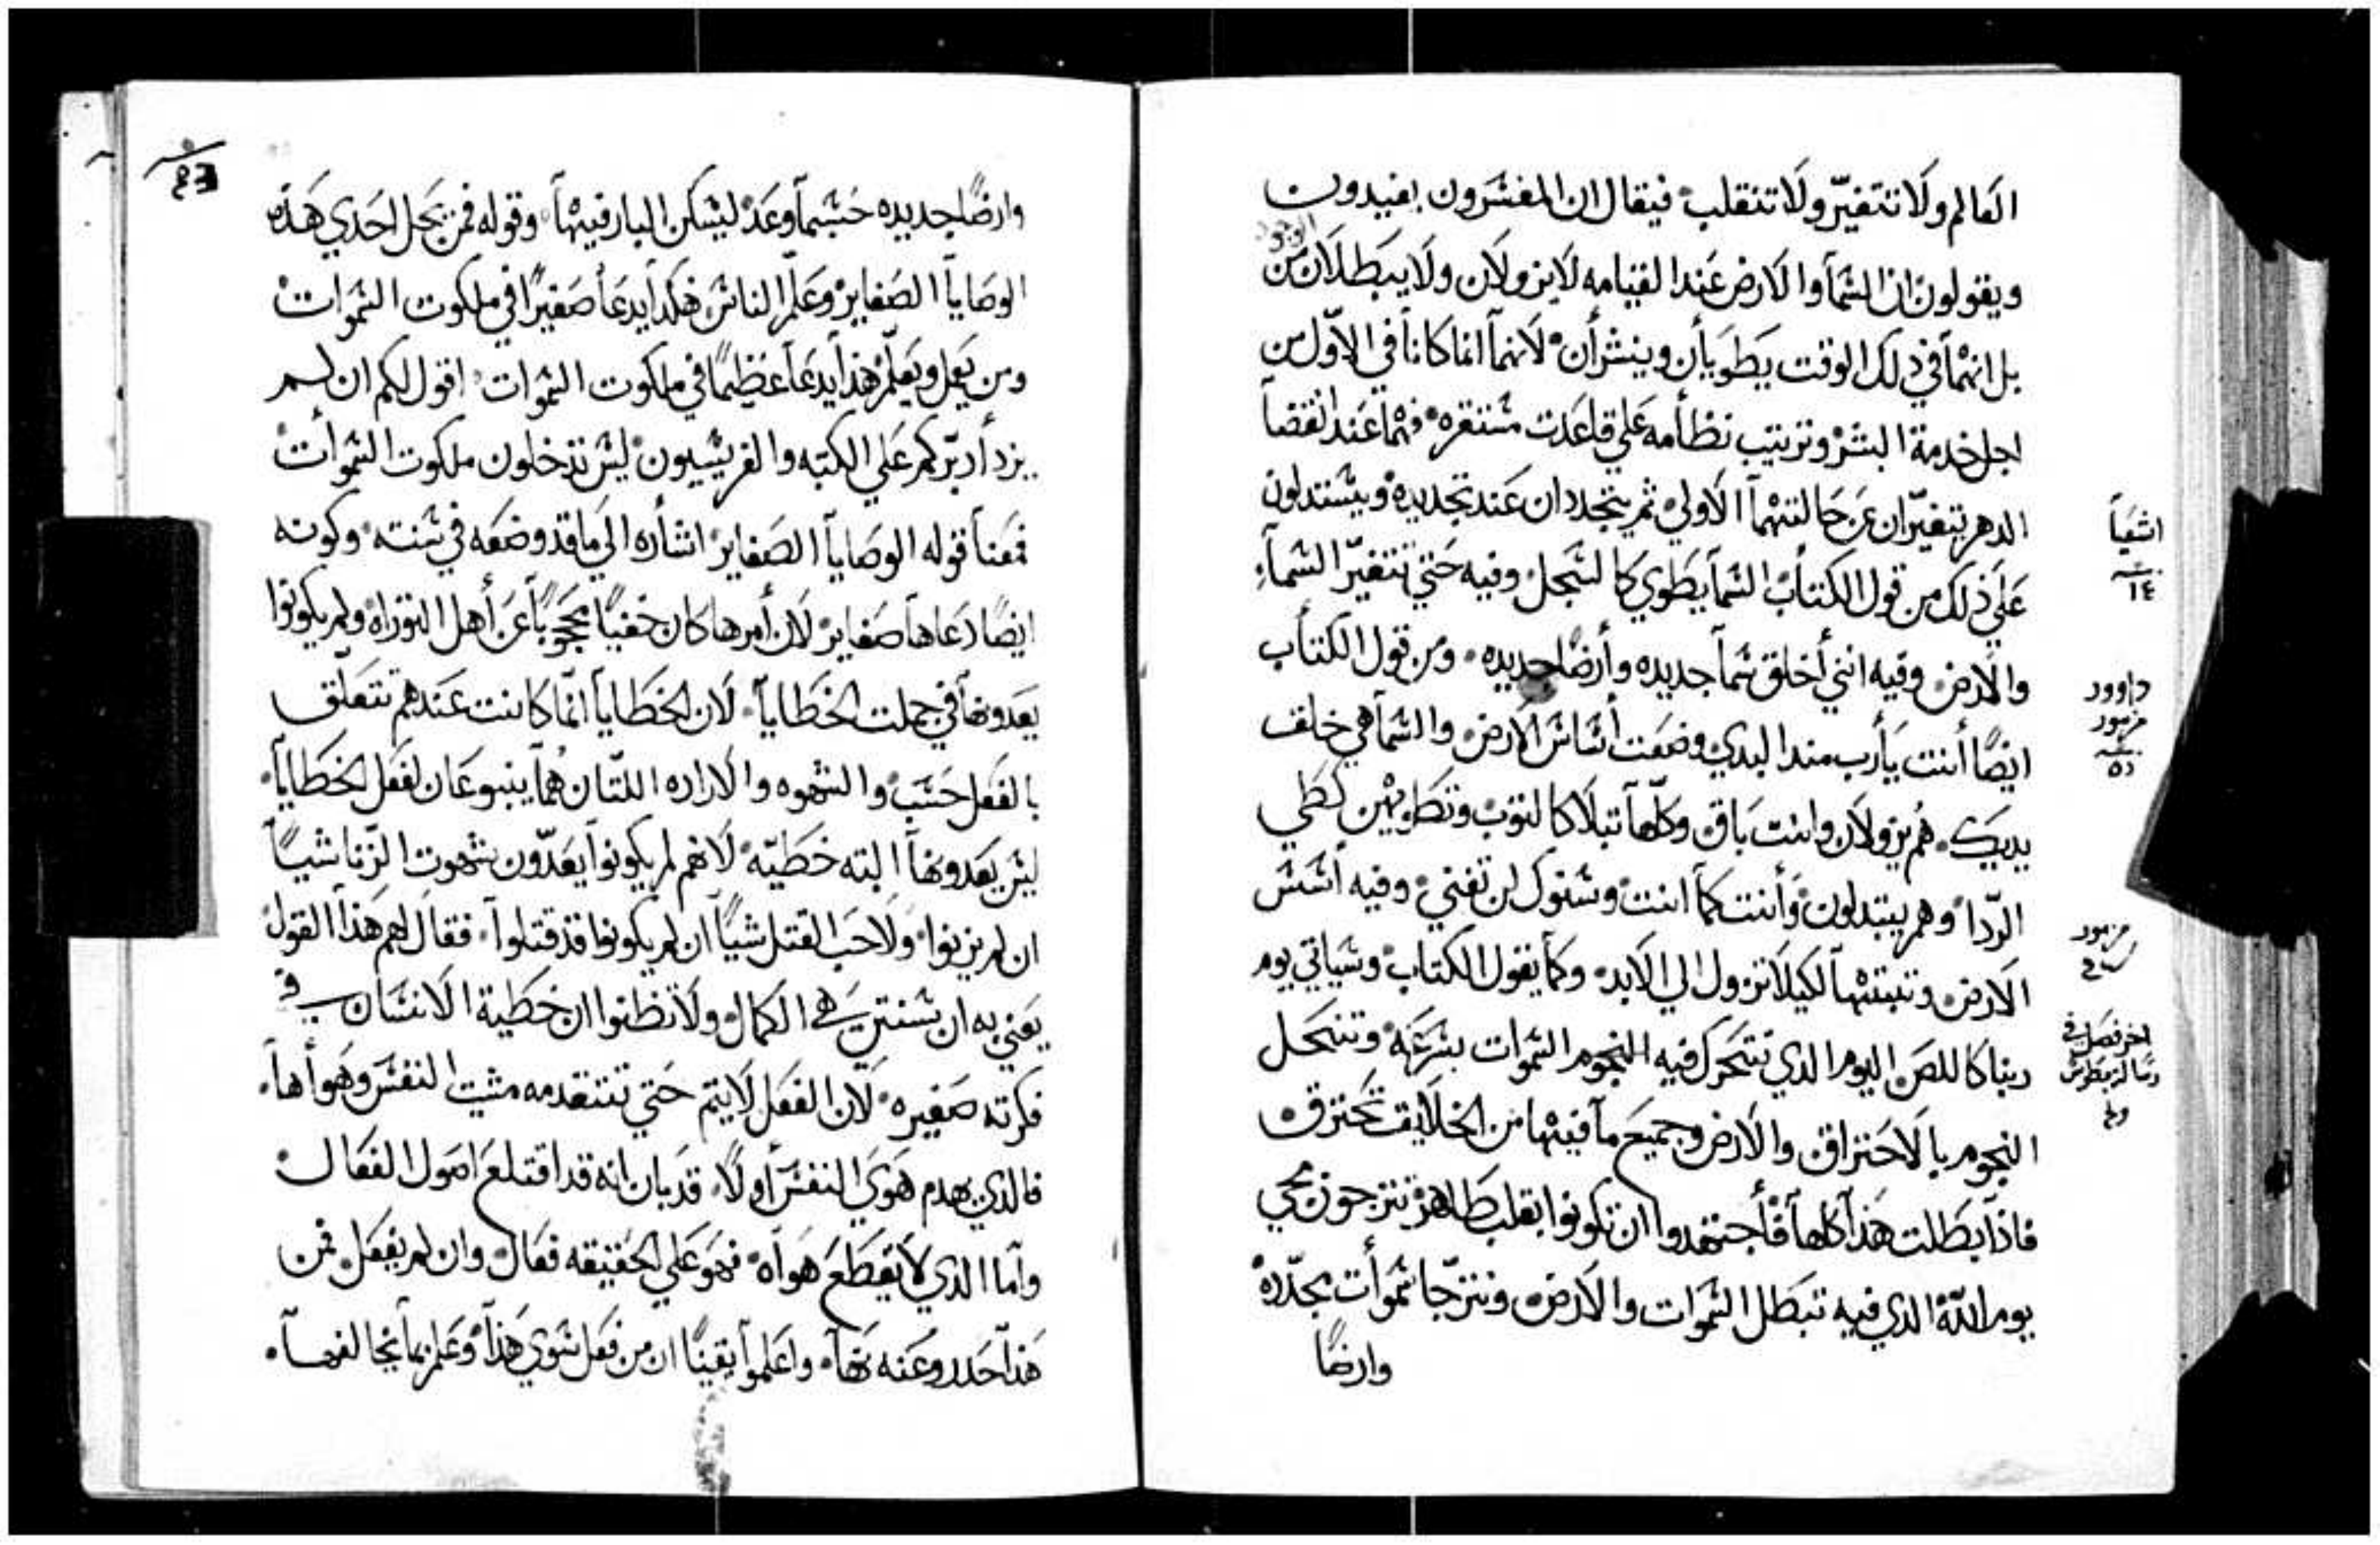 العالم ولا تتغيّر ولا تنقلب فيقال ان المفسرون يفيدون
ويقولون ان السمآ والارض عند القيامه لا يزولان ولا يبطلان من
بل انهمآ في ذلك الوقت يطويان وينشران لانهمآ انما كانا في الاوّل من
اجل خدمة البشر وترتيب نظامه علي قاعدت مستقره فهمآ عند انقضآ
الدهر يتغيّران عن حالتهمآ الاولي ثم يتجددان عند تجديده ويستدلون
علي ذلك من قول الكتاب السمآ يطوي كالسجل وفيه حتي تتغيّر السمآء
والارض وفيه انني أخلق سمآ جديده وأرضًا جديده ومن قول الكتاب
ايضًا أنت يارب مند البدي وضعت أساس الارض والسمآ هي خلقت
يديك هم يزولان وانت باق وكلّهآ تبلا كالتوب وتطويهن كطي
الرّدا وهم يبتدلون وأنت كمآ انت وسنوك لن تفني وفيه أسس
الارض وتبتهآ لكيلا تزول الي الابد وكما يقول الكتاب وسياتي يوم
ربنا كاللص اليوم الذي تتحرك فيه النجوم السموات بسرعه وتنحل
النجوم بالاحتراق والارض وجميع مآ فيها من الخلايق تحترق
فاذا بطلت هذآ كلهآ فأجتهدوا ان تكونوا بقلب طاهر تترجون مجي
يوم اللّه الذي فيه تبطل السموات والارض ونترجّا سموأت مجدّده
وارضًا
اشعيآ
١٤
داوود
مزمور
مزمور
اخر فصل في
رسالة بطرس
وارضًا جديده حسبمآ وعد ليسكن البار فيهآ وقوله فمن يحل احدي هذه
الوصايآ الصغاير وعلم الناس هكدآ يدعآ صغيرًا في ملكوت السموات
ومن يعمل ويعلّم هذآ يدعآ عظيمًا في ملكوت السموات اقول لكم ان لم
يزد أدبّركم علي الكتبه والفريسيون ليس تدخلون ملكوت السموأت
فمعنآ قوله الوصايآ الصغاير اشاره الي ما قد وضعه في سنته وكونه
ايضًا دعاهآ صغاير لان أمرها كان خفيًا محجوبًا عن أهل التوراه ولم يكونوا
يعدونهآ في جملت الخطايآ لان الخطايآ انّما كانت عندهم تتعلّق
بالفعل حسب والشهوه والاراده اللتان همآ ينبوعان لفعل الخطايآ
ليس يعدونهآ البته خطيّه لانهم لم يكونوا يعدّون شهوت الزّنا شيًا
ان لم يزنوا ولا حب القتل شيًا ان لم يكونوا قد قتلوآ فقال لهم هذآ القول
يعني به ان سنتي هي الكمال ولا تظنوا ان خطية الانسان في
فكرته صغيره لان الفعل لا يتم حتي تتقدمه مشيت النفس وهوأهآ
فالذي يهدم هوي النفس أولًا قد بان انه قد اقتلع اصول الفعال
وآما الذي لا يقطع هواه فهو علي الحقيقه فعال وان لم يفعل فمن
هذآ حدد وعنه نهآ وأعلموآ يقينًا ان من فعل سوي هذآ وعلم بمآ يخالفهآ